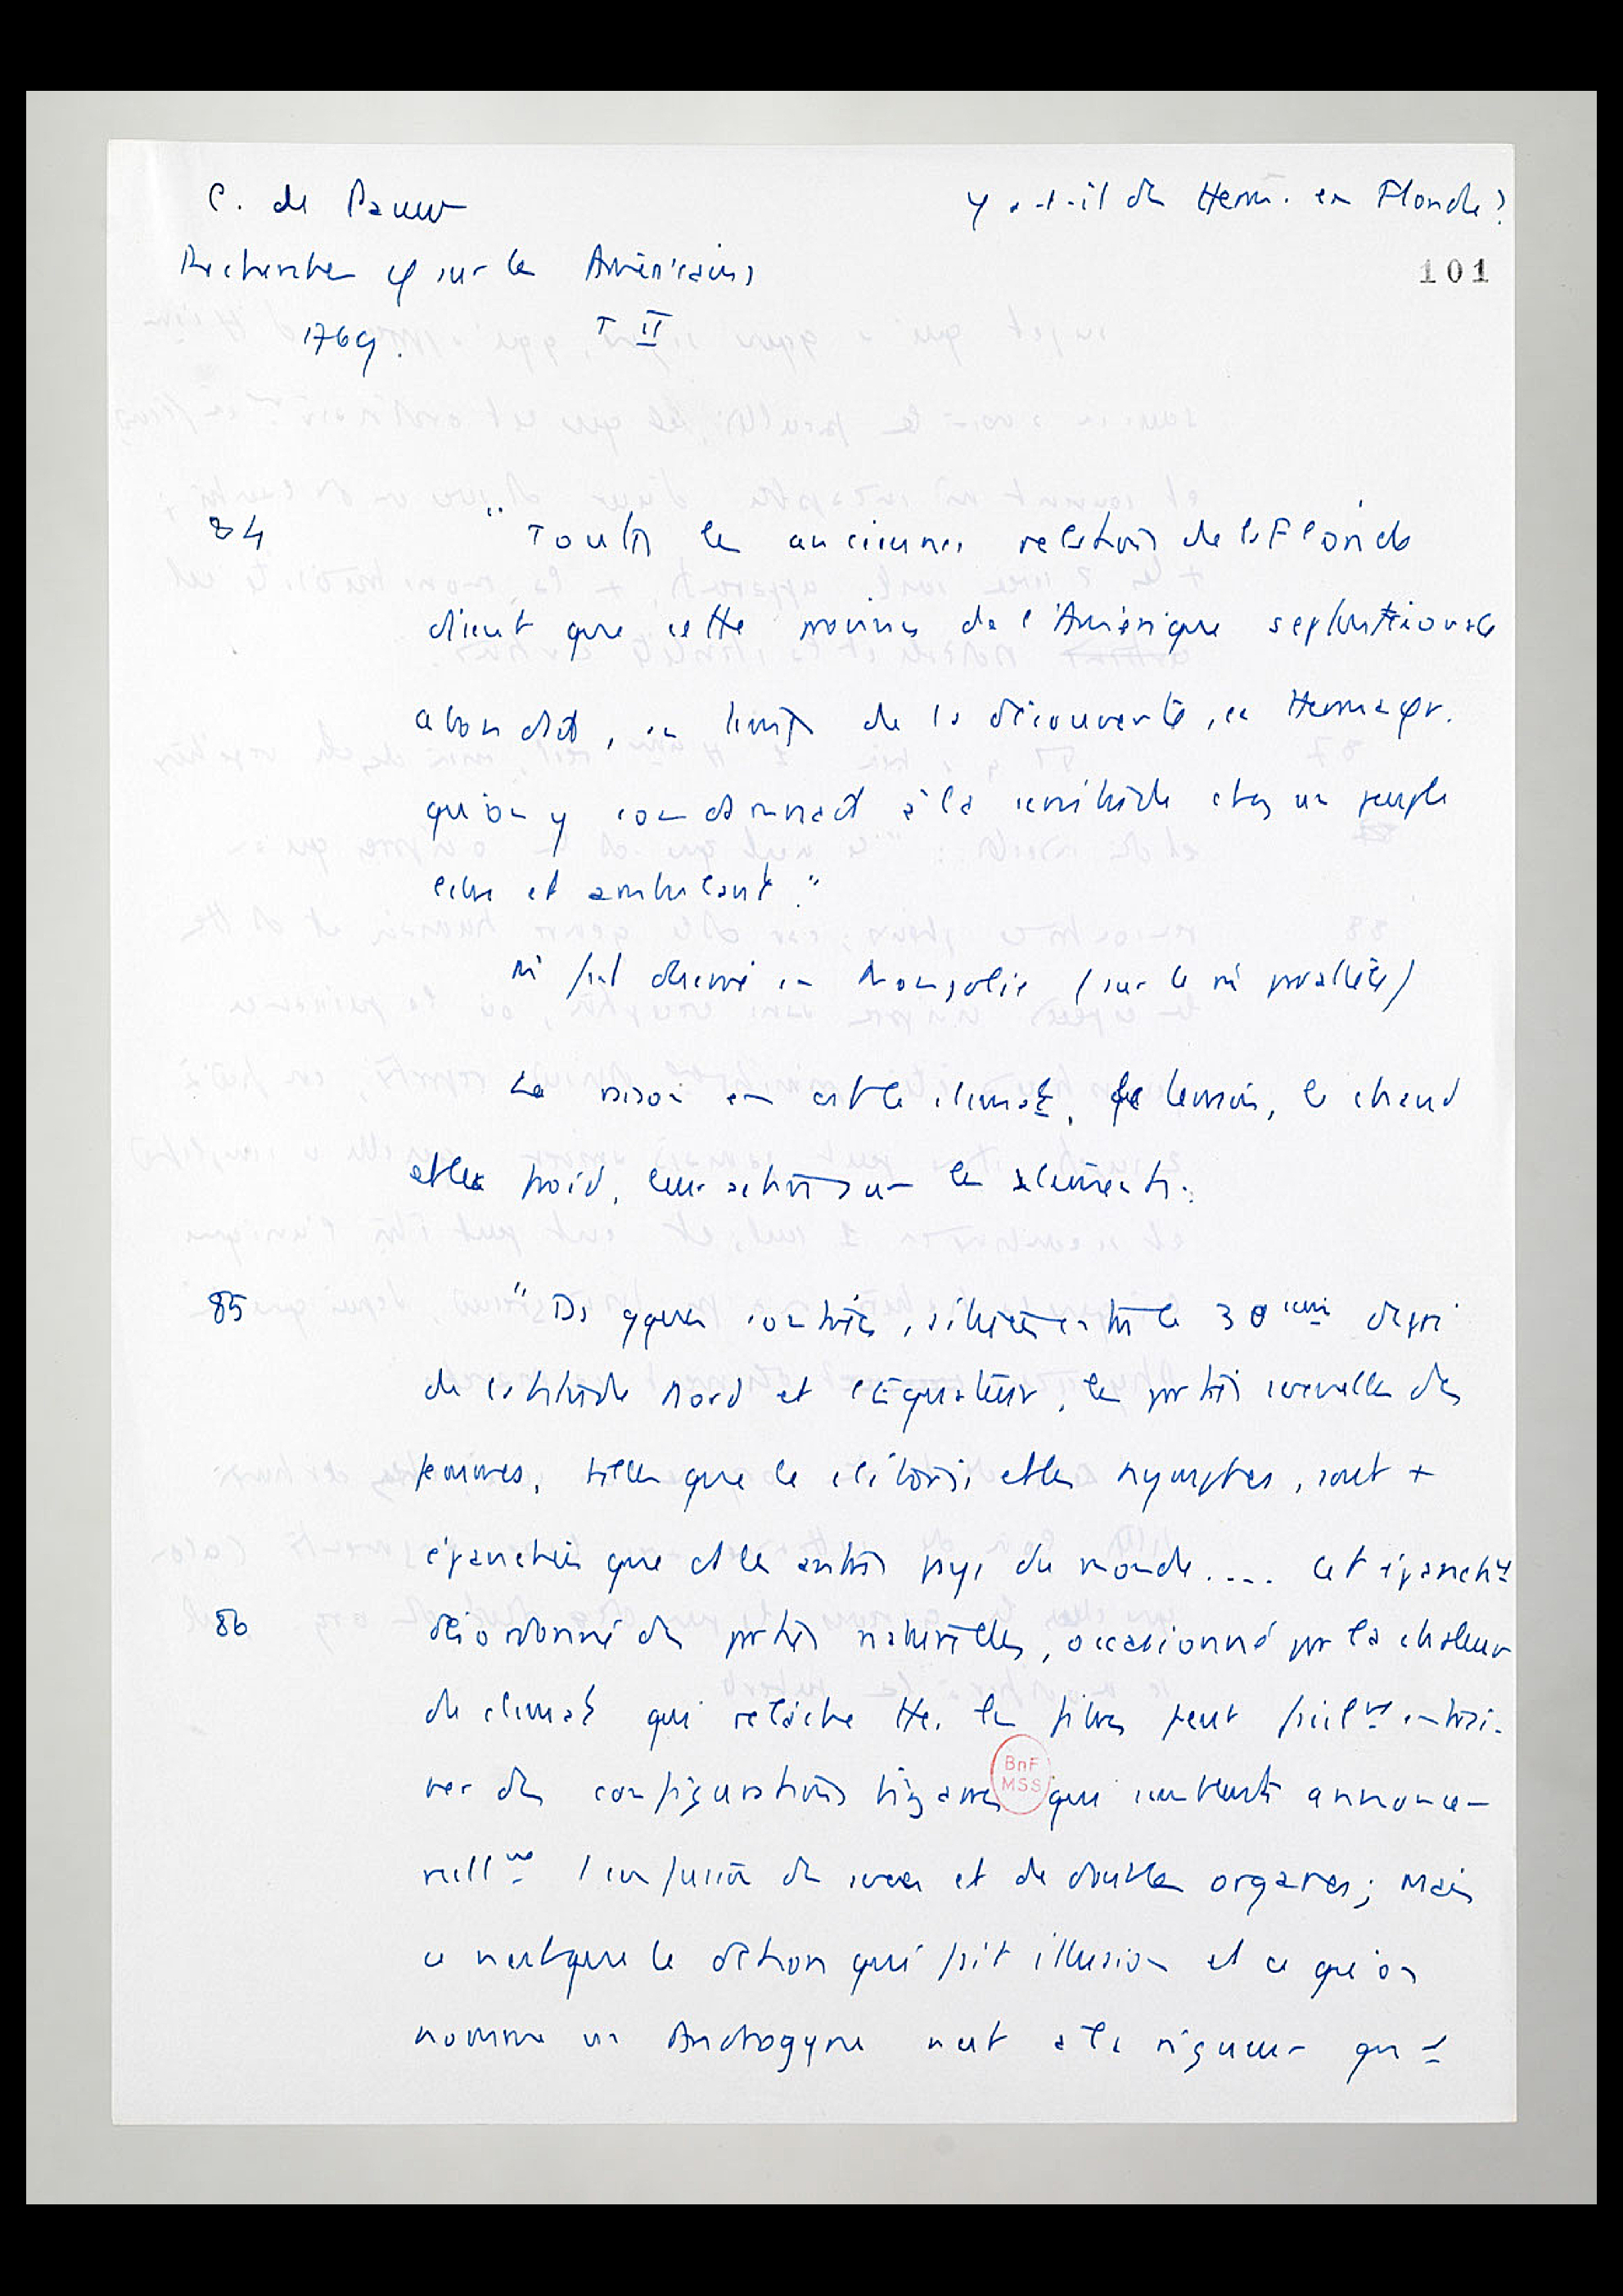 C. de Pauw
y a-t-il des Herm. en Floride?
Recherches φ sur les Américains
101
1769. T II
84 "Toutes les anciennes relations de la Floride
disent que cette province de l'Amérique septentrionale
abondait, au temps de la découverte, en Hermaφr.
qu'on y condamnait à la servitude chez un peuple
libre et ambulant."
en Mongolie (sur le parallèle)
La raison en est le climat, le terrain, le chaud
et le froid, leur action sur les aliments.
85 "Ds qques contrées, situées entre le 30ième degré
de latitude Nord et l'Équateur, les parties sexuelles des
femmes, telles que le clitoris et les nymphes, sont +
épanchées que ds les autres pays du monde.... Cet épancht
86 désordonné des parties naturelles, occasionné par la chaleur
du climat qui relâche tte. les fibres peut facilmt entraî-
ner des configurations bizarres qui semblent annoncer
BnF
MSS
réellmt l'effusion de sexes et de doubles organes; mais
ce n'est que le dehors qui fait illusion et ce qu'on
nomme un Androgyne n'est à la rigueur qu'1